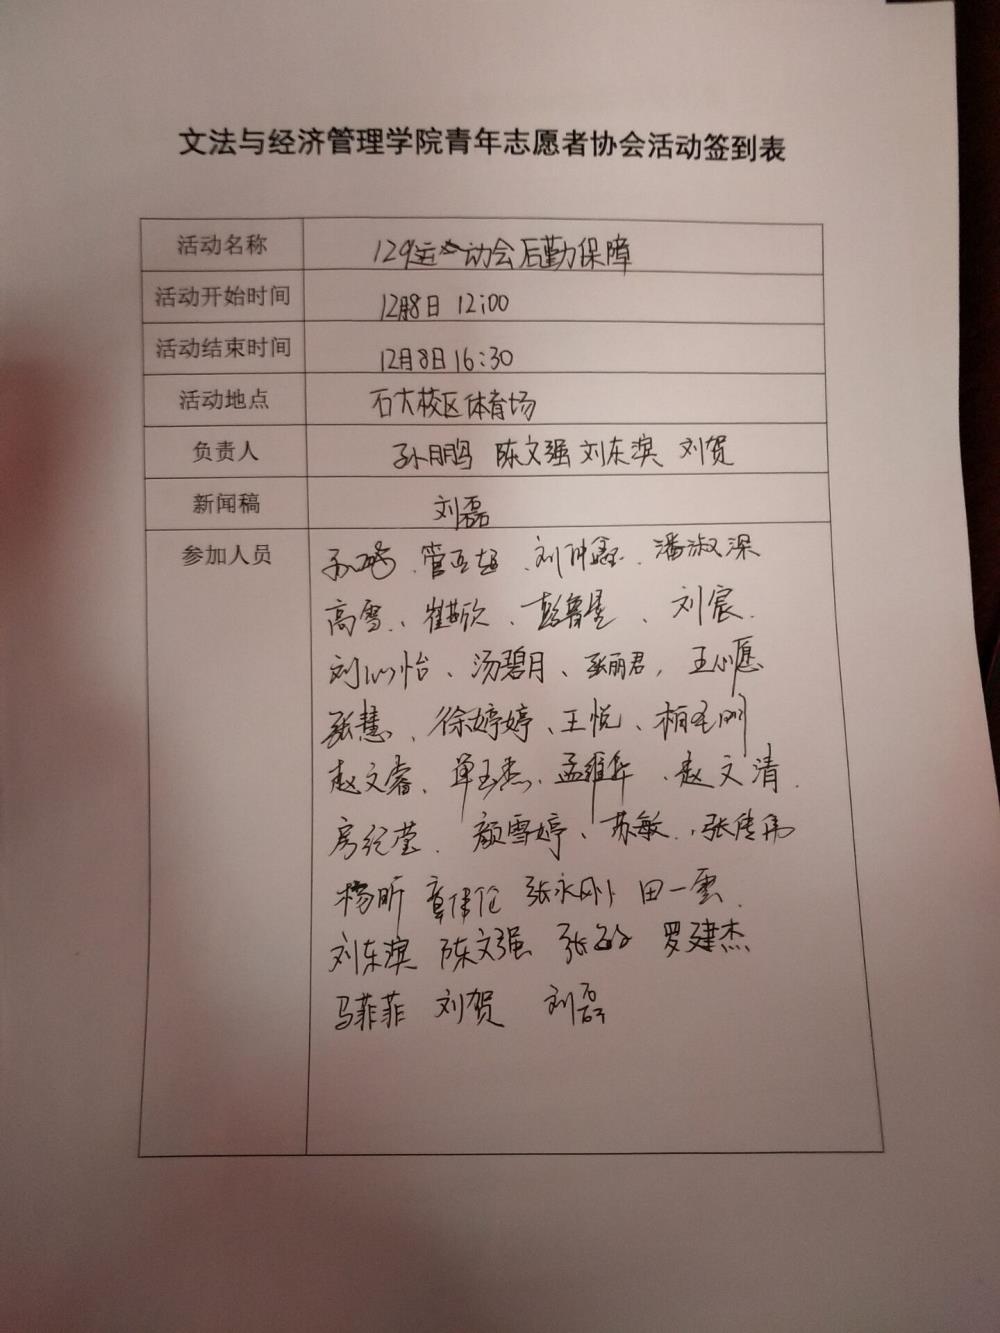 文法与经济管理学院青年志愿者协会活动签到表
活动名称 129运动会后勤保障
活动开始时间 12月8日 12:00
活动结束时间 12月8日 16:30
活动地点 石大校区体育场
负责人 孙鹏 陈文强 刘东滨 刘贺
新闻稿 刘磊
参加人员 孙鹏、管亚超、潘淑深
高雪、崔斯欣、彭鲁星、刘宸
刘心怡、汤碧月、张丽君,王心愿
张慧、徐婷婷、王悦、
赵文睿、单玉杰、孟维华、赵文清
房纪莹 颜雪婷、苏敏、张传伟
杨昕 章伟伦 张永刚 田一云
刘东滨 陈文强 张敏 罗建杰
马菲菲 刘贺 刘磊